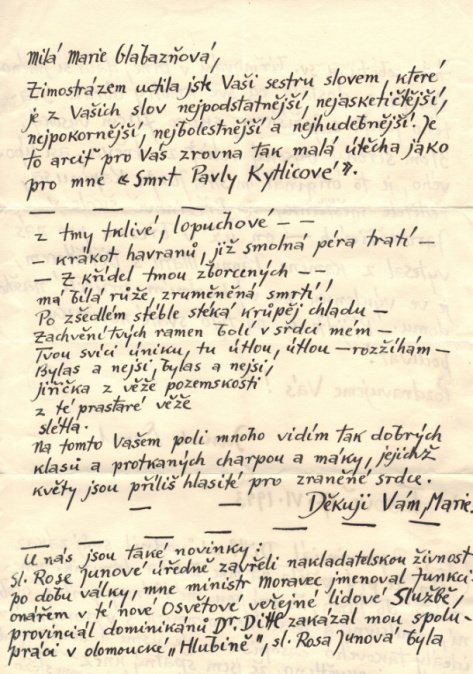 Milá Marie Glabazňová,
Zimostrázem uctila jste Vaši sestru slovem, které
je z Vašich slov nejpodstatnější, nejasketičtější,
nejpokornější, nejbolestnější a nejhudebnější. Je
to arciť pro Vás zrovna tak malá útěcha jako
pro mne «Smrt Pavly Kytlicové».
— — — —
z tmy tklivé, lopuchové — —
— krákot havranů, již smolná péra tratí —
— Z křídel tmou zborcených — —
má bílá růže, zruměněná smrtí!
Po zšedlém stéble stéká krůpěj chladu —
Zachvění tvých ramen bolí v srdci mém —
Tvou svíci úniku, tu útlou, útlou — rozžíhám —
Bylas a nejsi, bylas a nejsi,
jiřička z věže pozemskosti
z té prastaré věže
slétla.
Na tomto Vašem poli mnoho vidím tak dobrých
klasů a protkaných charpou a máky, jejichž
květy jsou příliš hlasité pro zraněné srdce.
— — Děkuji Vám, Marie.
— — — — — —
U nás jsou také novinky:
sl. Rose Junové úředně zavřeli nakladatelskou živnost
po dobu války, mne ministr Moravec jmenoval funkci-
onářem v té nové Osvětové veřejné lidové Službě,
provinciál dominikánů Dr. Dittl zakázal mou spolu-
práci v olomoucké „Hlubině", sl. Rosa Junová byla